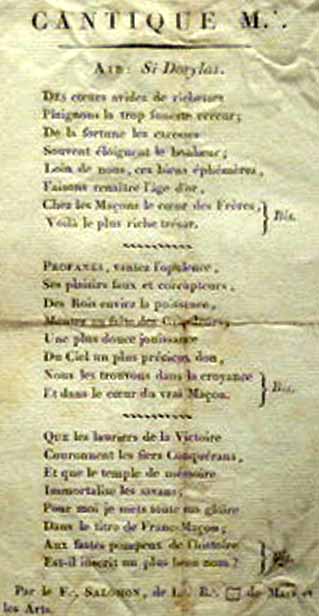 CANTIQUE M.˙.
AIR: Si Dorylas.
DES cœurs avides de richesses
Plaignons la trop funeste erreur;
De la fortune les caresses
Souvent éloignent le bonheur;
Loin de nous, ces biens éphémères,
Faisons renaître l'âge d'or,
Chez les Maçons le cœur des Frères, } Bis.
Voilà le plus riche trésor.
PROFANES, vantez l'opulence,
Ses plaisirs faux et corrupteurs,
Des Rois enviez la puissance,
Montez au faîte des
Une plus douce jouissance
Du Ciel un plus précieux don,
Nous les trouvons dans la croyance } Bis.
Et dans le cœur du vrai Maçon.
QUE les lauriers de la Victoire
Couronnent les fiers Conquérans,
Et que le temple de mémoire
Immortalise les savans;
Pour moi je mets toute ma gloire
Dans le titre de Franc-Maçon;
Aux fastes pompeux de l'histoire } Bis.
Est-il inscrit un plus beau nom?
Par le F.˙. SALOMON, de L. R. □ de Mars et
les Arts.